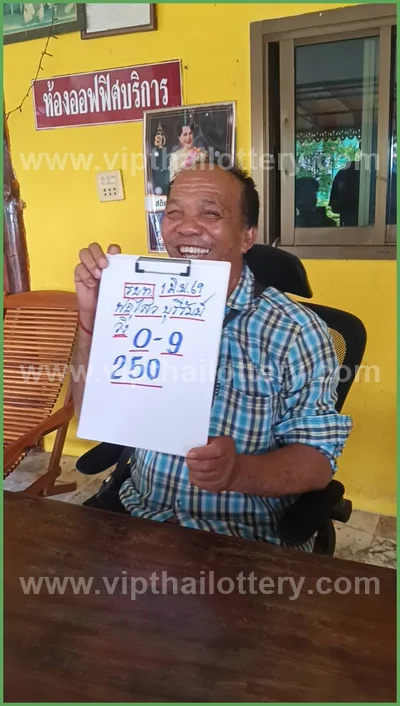 ห้องออฟฟิศบริการ
www.vipthailottery.com
รมท. 1 มิ.ย. 69
พ่อไสว บุรีรัมย์
วิ่ง 0-9
250
www.vipthailottery.com
www.vipthailottery.com